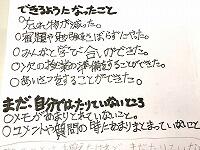 できるようになったこと
○忘れ物が減った。
○宿題や見りみをさぼらずやった。
○みんなと学び合いができた。
○次の授業の準備をすることができた。
○あいさつをすることができた。
まだ自分ではたりていないところ
○メモがあまりとれていないこと。
○コメントや質問の時にあまりまとまっていないこと